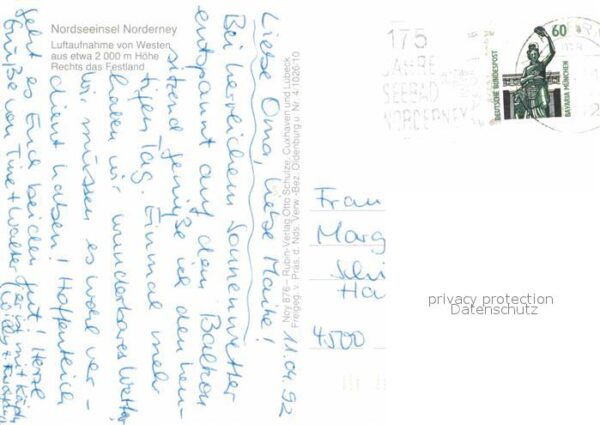 Nordseeinsel Norderney
Luftaufnahme von Westen
aus etwa 2 000 m Höhe
Rechts das Festland
11.04.92
Liebe Oma, liebe Maike!
Bei herrlichem Sonnenwetter
entspannt auf dem Balkon
sitzend genieße ich den heu-
tigen Tag. Einmal mehr
haben wir wunderbares Wetter
wir müssen es wohl ver-
dient haben! Hoffentlich
geht es Euch beiden gut! Herzl.
Grüße von Tine + Walter
Noy 876 – Rubin-Verlag Otto Schulze, Cuxhaven und Lübeck
Freigeg. v. Präs. d. Nds. Verw.-Bez. Oldenburg u. Nr. 4.1026/10
175
JAHRE
SEEBAD
NORDERNEY
60
DEUTSCHE BUNDESPOST
BAVARIA MÜNCHEN
Frau
Marg
Ha
4500
privacy protection
Datenschutz